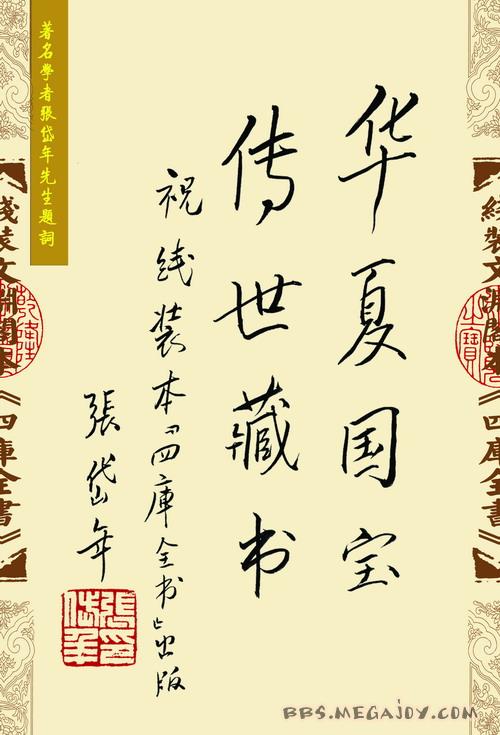 著名學者張岱年先生題詞
华夏国宝
传世藏书
祝线装本『四庫全书』出版
張岱年
張岱年印
綫裝文淵閣本《四庫全書》
綫裝文淵閣本《四庫全書》
BBS.MEGAJOY.COM